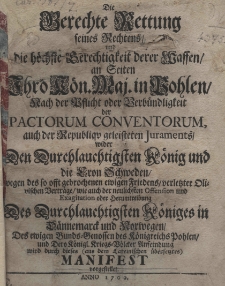 Die
Gerechte Rettung
seines Rechtens/
und
die höchste Gerechtigkeit derer Waffen/
an Seiten
Ihro Kön. Maj. in Pohlen/
Nach der Pflicht oder Verbündligkeit
der
PACTORUM CONVENTORUM,
auch der Republiqv geleisteten Juraments/
wider
Den Durchlauchtigsten König und
die Cron Schweden/
wegen des so offt gebrochenen ewigen Friedens/ verletzter Oli-
vischen Verträge/ wie auch der neulichsten Offension und
Des Durchlauchtigsten Königes in
Dännemarck und Norwegen/
Des ewigen Bunds-Genossen des Königreichs Pohlen/
und Dero Königl. Kriegs-Völcker Aussendung
wird durch dieses (aus dem Lateinischen übersetztes)
MANIFEST
vorgestellet
ANNO